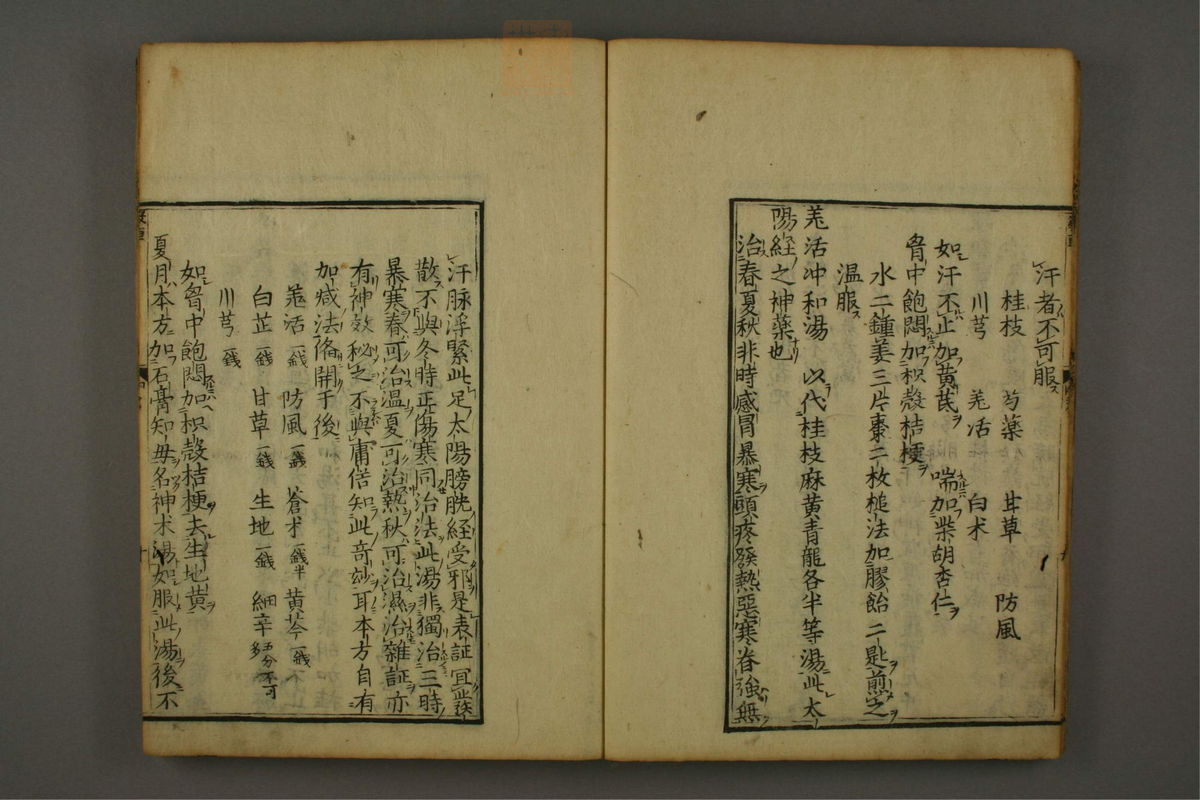 汗者不可服
桂枝 芍薬 甘草 防風
川芎 羌活 白朮
如汗不止加黄芪 喘加柴胡杏仁
胷中飽悶加枳殻桔梗
水二鍾姜三片棗二枚槌法加膠飴二匙煎之
温服
羌活冲和湯 以代桂枝麻黄青龍各半等湯此太
陽経之神薬也
治春夏秋非時感冒暴寒頭疼發熱惡寒脊強無
汗脉浮緊此足太陽膀胱経受邪是表証宜發
散不與冬時正傷寒同治法此湯非獨治三時
暴寒春可治温夏可治熱秋可治濕治雜証亦
有神效秘之不與庸俗知此奇妙耳本方自有
加减法俻開于後
羗活一錢 防風一錢 蒼朮一錢半 黄芩一錢
白芷一錢 甘草一錢 生地一錢 細辛五分不可多
川芎一錢
如胷中飽悶加枳殻桔梗去生地黄
夏月本方加石膏知母名神朮湯如服此湯後不